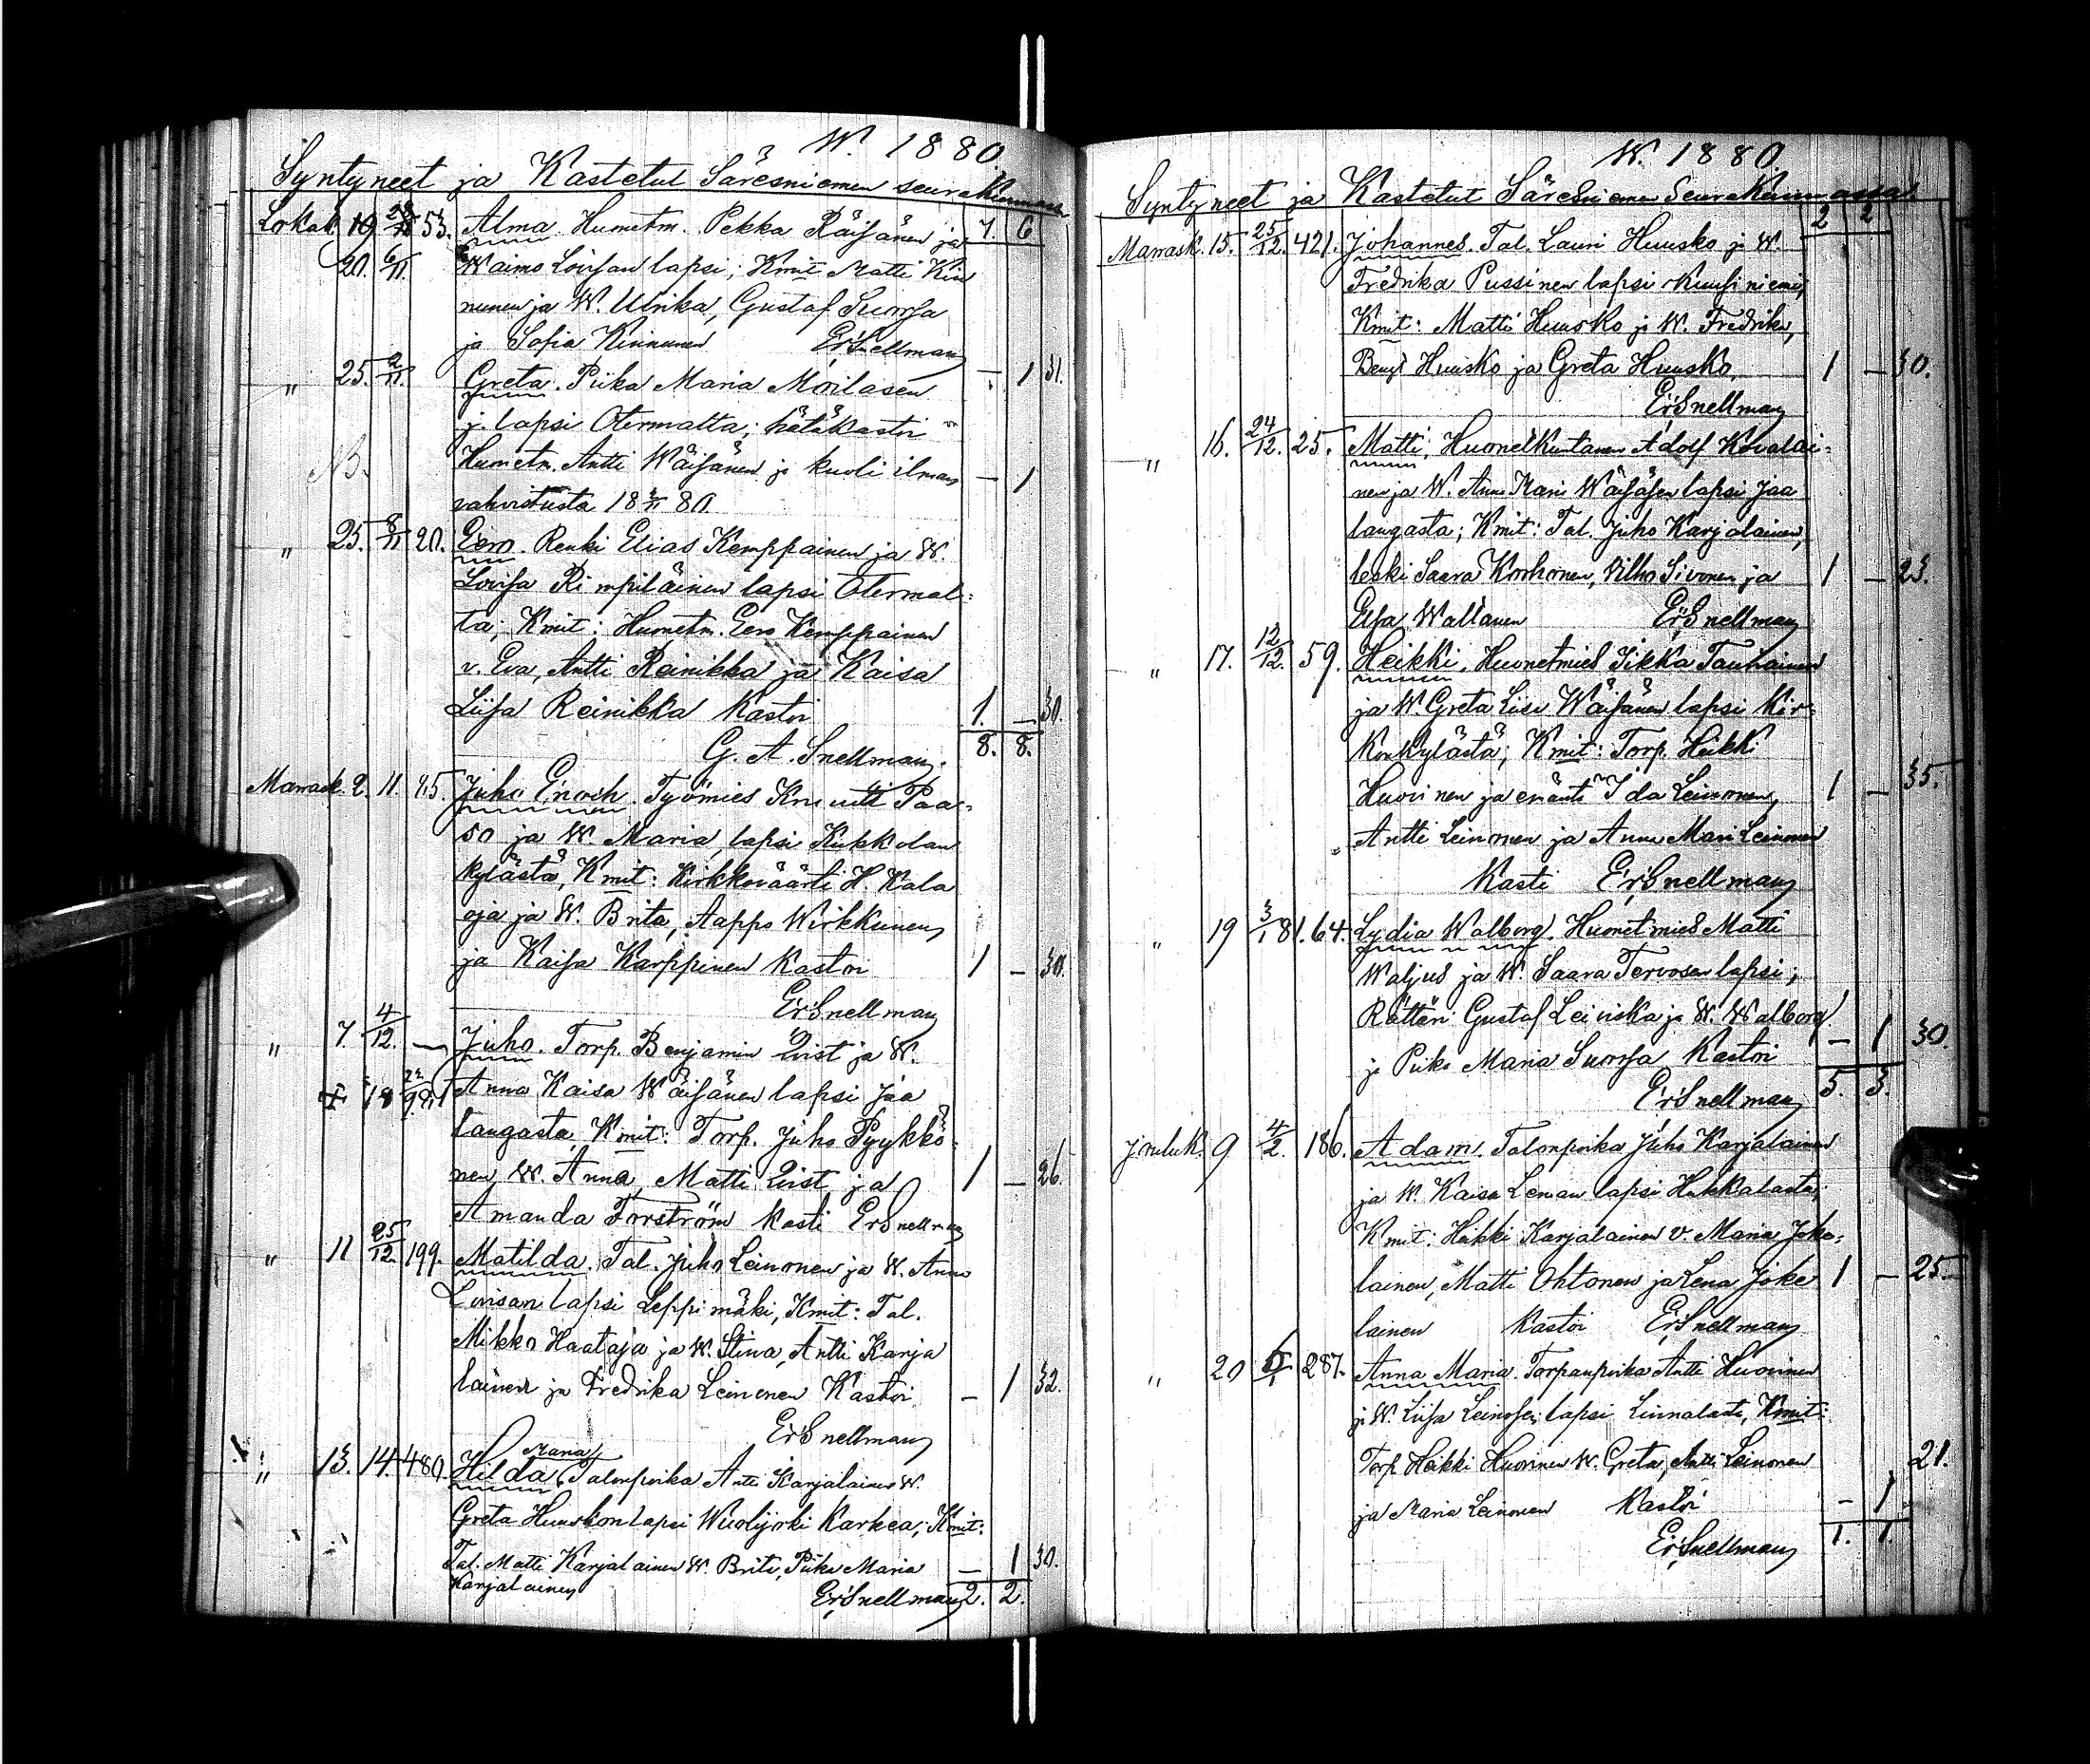 W. 1880.
Syntyneet ja Kastetut Säresniemen seurakunnassa
Lokak. 19 53. Alma. Huonetm. Pekka Räisänen ja 7. 6
20. 6/11. Waimo Loviisan lapsi; Kmit Matti Kin
nunen ja W. Ulrika, Gustaf Suorsa
ja Sofia Kinnunen ErSnellman
" 25. 2/11. Greta. Piika Maria Moilasen — 1 31.
j. lapsi Otermalta; hätäkastoi
NB. Huonetm. Antti Wäisänen ja kuoli ilman — 1
vahvistusta 18 3/11 80
" 25. 8/11 20. Eero. Renki Elias Kemppainen ja W.
Lovisa Rimpiläinen lapsi Otermal-
ta; Kmit: Huonetm. Eero Kemppainen
v. Eva, Antti Reinikka ja Kaisa
Liisa Reinikka Kastoi 1. — 30.
G. A. Snellman. 8. 8.
Marrask. 2. 11. 25. Juho Enoch. Työmies Knuutti Paa-
so ja W. Maria, lapsi Kukkolan
kylästä, Kmit: Kirkkoväärti H. Kala
oja ja W. Brita, Aappo Wirkkunen
ja Kaisa Karppinen Kastoi 1 — 30.
ErSnellman
" 7. 4/12. — Juho. Torp. Benjamin Qvist ja W.
Anna Kaisa Wäisänen lapsi Jaa
langasta, Kmit: Torp. Juho Pyykkö-
nen W. Anna, Matti Qvist ja 1 — 26.
Amanda Forström kasti ErSnellman
" 11 25/12. 199. Matilda. Tal. Juho Leinonen ja W. Anna
Lovisan lapsi Leppimäki, Kmit: Tal.
Mikko Haataja ja W. Stina, Antti Karja
lainen ja Fredrika Leinonen Kastoi — 1 32.
ErSnellman
" 13. 14. 480. Hilda Maria, Talonpoika Antti Karjalainen W.
Greta Huuskon lapsi Wuolijoki Karhea; Kmit:
Tal. Matti Karjalainen W. Brita, Piika Maria — 1 30.
Karjalainen ErSnellman 2. 2.
W. 1880.
Syntyneet ja Kastetut Säresniemen Seurakunnassa
2 2
Marrask. 15. 25/12. 421. Johannes. Tal. Lauri Huusko ja W.
Fredrika Pussinen lapsi Kuusiniemi,
Kmit: Matti Huusko ja W. Fredrika,
Bengt Huusko ja Greta Huusko, 1 — 30.
ErSnellman
" 16. 24/12. 25. Matti, Huonetkuntanen Adolf Kovalai-
nen ja W. Anna Maria Wäisäsen lapsi Jaa
langasta; Kmit: Tal. Juho Karjalainen,
leski Saara Korhonen, Vilho Sivonen ja 1 — 23.
Elsa Wallanen ErSnellman
" 17. 12/12. 59. Heikki. Huonetmies Iikka Tauriainen
ja W. Greta Liisa Wäisänen lapsi Kir-
konkylästä; Kmit: Torp. Heikki
Huovinen ja emäntä Ida Leinonen, 1 — 35.
Antti Leinonen ja Anna Mari Leinonen
Kasti ErSnellman
" 19 3/1 81. 64. Lydia Walborg. Huonetmies Matti
Waljus ja W. Saara Tervosen lapsi;
Rättäri Gustaf Leiviska ja W. Walborg
ja Piika Maria Suorsa Kastoi — 1 30.
ErSnellman 5. 3.
Jouluk. 9 4/2. 186. Adam. Talonpoika Juho Karjalainen
ja W. Kaisa Lenan lapsi Hakkalasta;
Kmit: Heikki Karjalainen v. Maria Joke-
lainen, Matti Ohtonen ja Lena Joke 1 — 25.
lainen Kastoi ErSnellman
" 20 6/1 287. Anna Maria. Torpanpoika Antti Huovinen
ja W. Liisa Leinosen lapsi Linnalasta, Kmit:
Torp. Heikki Huovinen W. Greta, Antti Leinonen 21.
ja Maria Leinonen Kastoi — 1
ErSnellman 1. 1.